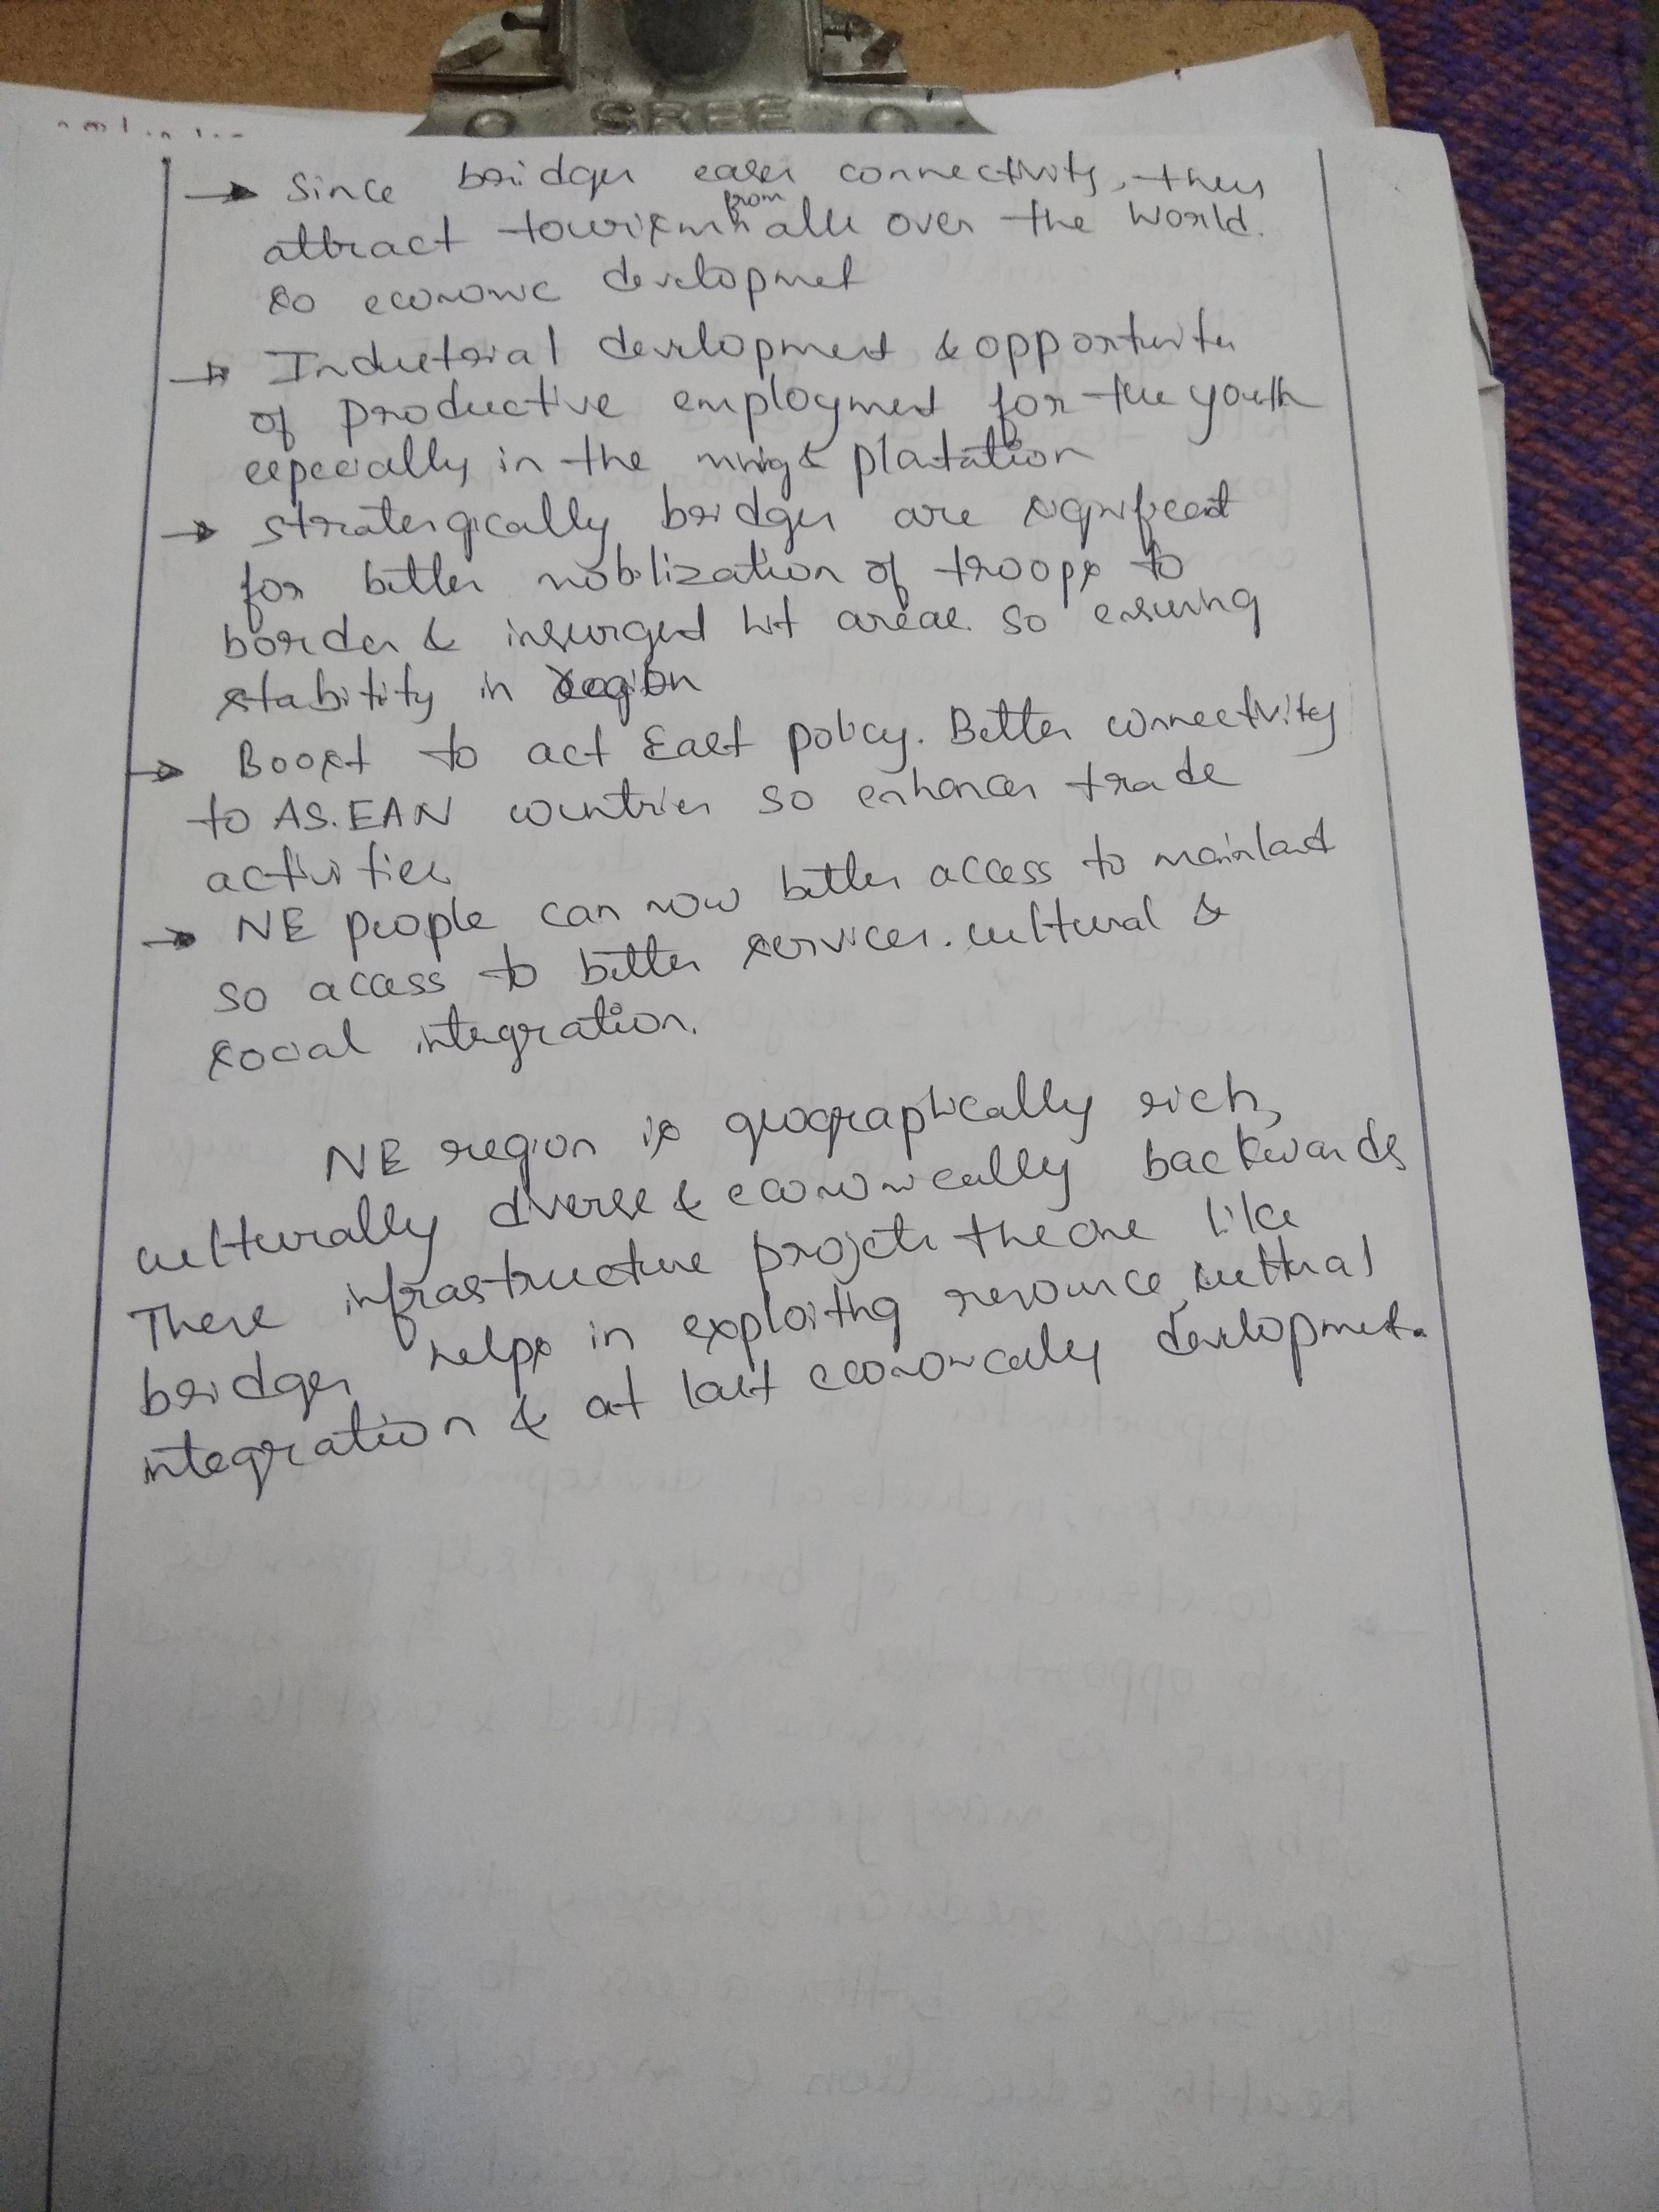 SREE
→ Since bridges eases connectivity, they
attract tourism from all over the world.
so economic developmet
→ Industrial development & opportunites
of productive employment for the youth
especially in the minig & platation
→ stratergically bridges are significant
for better mobilization of troops to
border & insurgent hit areas. so ensuring
stability in region
→ Boost to act East policy. Better connectivity
to ASEAN countries so enhances trade
activities
→ NE people can now better access to mainland
so access to better services. cultural &
social integration.
NE region is geographically rich,
culturally diverse & economically backwards
These infrastructure projects the one like
bridges helps in exploiting resource, cultural
integration & at last economically development.